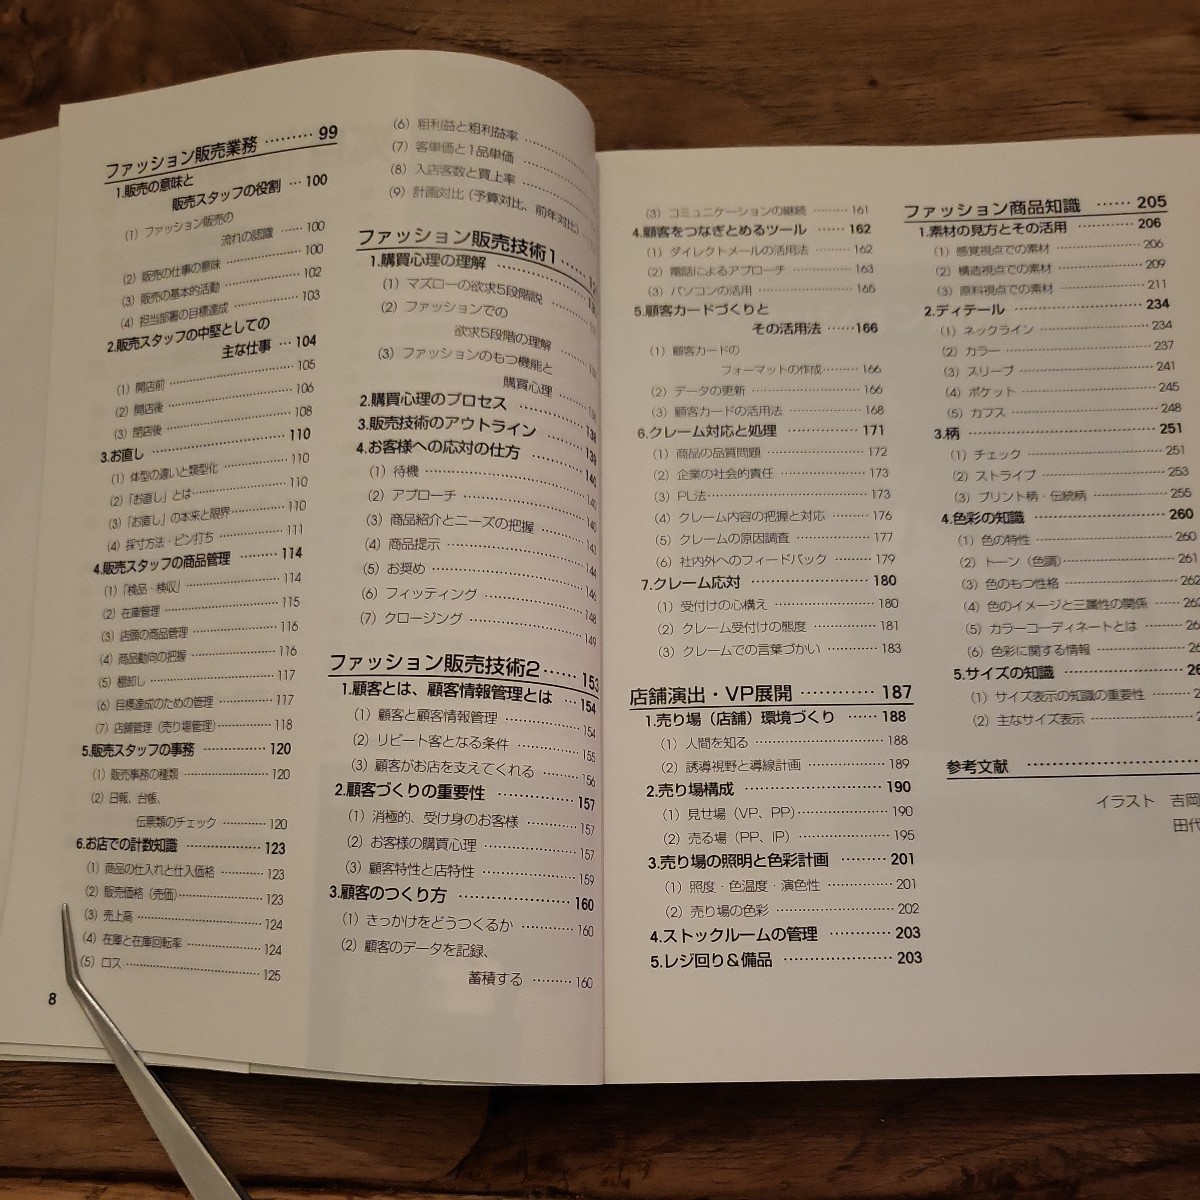 ファッション販売業務 ……… 99
1.販売の意味と
販売スタッフの役割 … 100
(1) ファッション販売の
流れの認識 …… 100
(2) 販売の仕事の意味 ……………… 100
(3) 販売の基本的活動 ……………… 102
(4) 担当部署の目標達成 ………… 103
2.販売スタッフの中堅としての
主な仕事 … 104
(1) 開店前 ……………………… 105
(2) 開店後 ……………………… 106
(3) 閉店後 ……………………… 108
3.お直し ……………………… 110
(1) 体型の違いと類型化 ………… 110
(2)「お直し」とは ……………… 110
(3)「お直し」の本来と限界 ……… 110
(4) 採寸方法・ピン打ち ………… 111
4.販売スタッフの商品管理 ……… 114
(1)「検品・検収」 ……………… 114
(2) 在庫管理 …………………… 115
(3) 店頭の商品管理 ……………… 116
(4) 商品動向の把握 ……………… 116
(5) 棚卸し ……………………… 117
(6) 目標達成のための管理 ……… 117
(7) 店舗管理（売り場管理）……… 118
5.販売スタッフの事務 …………… 120
(1) 販売事務の種類 ……………… 120
(2) 日報、台帳、
伝票類のチェック ………… 120
6.お店での計数知識 ……………… 123
(1) 商品の仕入れと仕入価格 ……… 123
(2) 販売価格（売価）……………… 123
(3) 売上高 ……………………… 124
(4) 在庫と在庫回転率 …………… 124
(5) ロス ………………………… 125
8
(6) 粗利益と粗利益率 ……………
(7) 客単価と1品単価 ……………
(8) 入店客数と買上率 ……………
(9) 計画対比（予算対比、前年対比）…
ファッション販売技術1 ……
1.購買心理の理解 ………………
(1) マズローの欲求5段階説 ………
(2) ファッションでの
欲求5段階の理解 ……
(3) ファッションのもつ機能と
購買心理 ……
2.購買心理のプロセス ……………
3.販売技術のアウトライン ……… 139
4.お客様への応対の仕方 ………… 140
(1) 待機 ………………………… 140
(2) アプローチ …………………… 140
(3) 商品紹介とニーズの把握 …… 143
(4) 商品提示 …………………… 144
(5) お奨め ……………………… 146
(6) フィッティング ……………… 148
(7) クロージング ………………… 149
ファッション販売技術2 …… 153
1.顧客とは、顧客情報管理とは … 154
(1) 顧客と顧客情報管理 ………… 154
(2) リピート客となる条件 ……… 155
(3) 顧客がお店を支えてくれる …… 156
2.顧客づくりの重要性 …………… 157
(1) 消極的、受け身のお客様 …… 157
(2) お客様の購買心理 …………… 157
(3) 顧客特性と店特性 …………… 159
3.顧客のつくり方 ………………… 160
(1) きっかけをどうつくるか …… 160
(2) 顧客のデータを記録、
蓄積する ……… 160
(3) コミュニケーションの継続 ……… 161
4.顧客をつなぎとめるツール …… 162
(1) ダイレクトメールの活用法 …… 162
(2) 電話によるアプローチ ………… 163
(3) パソコンの活用 ……………… 165
5.顧客カードづくりと
その活用法 …… 166
(1) 顧客カードの
フォーマットの作成 …… 166
(2) データの更新 ………………… 166
(3) 顧客カードの活用法 ………… 168
6.クレーム対応と処理 …………… 171
(1) 商品の品質問題 ……………… 172
(2) 企業の社会的責任 …………… 173
(3) PL法 ………………………… 173
(4) クレーム内容の把握と対応 …… 176
(5) クレームの原因調査 ………… 177
(6) 社内外へのフィードバック …… 179
7.クレーム応対 ………………… 180
(1) 受付けの心構え ……………… 180
(2) クレーム受付けの態度 ……… 181
(3) クレームでの言葉づかい …… 183
店舗演出・VP展開 ………… 187
1.売り場（店舗）環境づくり …… 188
(1) 人間を知る …………………… 188
(2) 誘導視野と導線計画 ………… 189
2.売り場構成 …………………… 190
(1) 見せ場（VP、PP）…………… 190
(2) 売る場（PP、IP）…………… 195
3.売り場の照明と色彩計画 ……… 201
(1) 照度・色温度・演色性 ……… 201
(2) 売り場の色彩 ………………… 202
4.ストックルームの管理 ………… 203
5.レジ回り＆備品 ………………… 203
ファッション商品知識 …… 205
1.素材の見方とその活用 ………… 206
(1) 感覚視点での素材 …………… 206
(2) 構造視点での素材 …………… 209
(3) 原料視点での素材 …………… 211
2.ディテール …………………… 234
(1) ネックライン ………………… 234
(2) カラー ……………………… 237
(3) スリーブ …………………… 241
(4) ポケット …………………… 245
(5) カフス ……………………… 248
3.柄 …………………………… 251
(1) チェック …………………… 251
(2) ストライプ ………………… 253
(3) プリント柄・伝統柄 ………… 255
4.色彩の知識 …………………… 260
(1) 色の特性 …………………… 260
(2) トーン（色調）……………… 261
(3) 色のもつ性格 ………………… 262
(4) 色のイメージと三属性の関係 ……
(5) カラーコーディネートとは ……
(6) 色彩に関する情報 ……………
5.サイズの知識 …………………
(1) サイズ表示の知識の重要性 ……
(2) 主なサイズ表示 ………………
参考文献 ………………………
イラスト 吉岡
田代